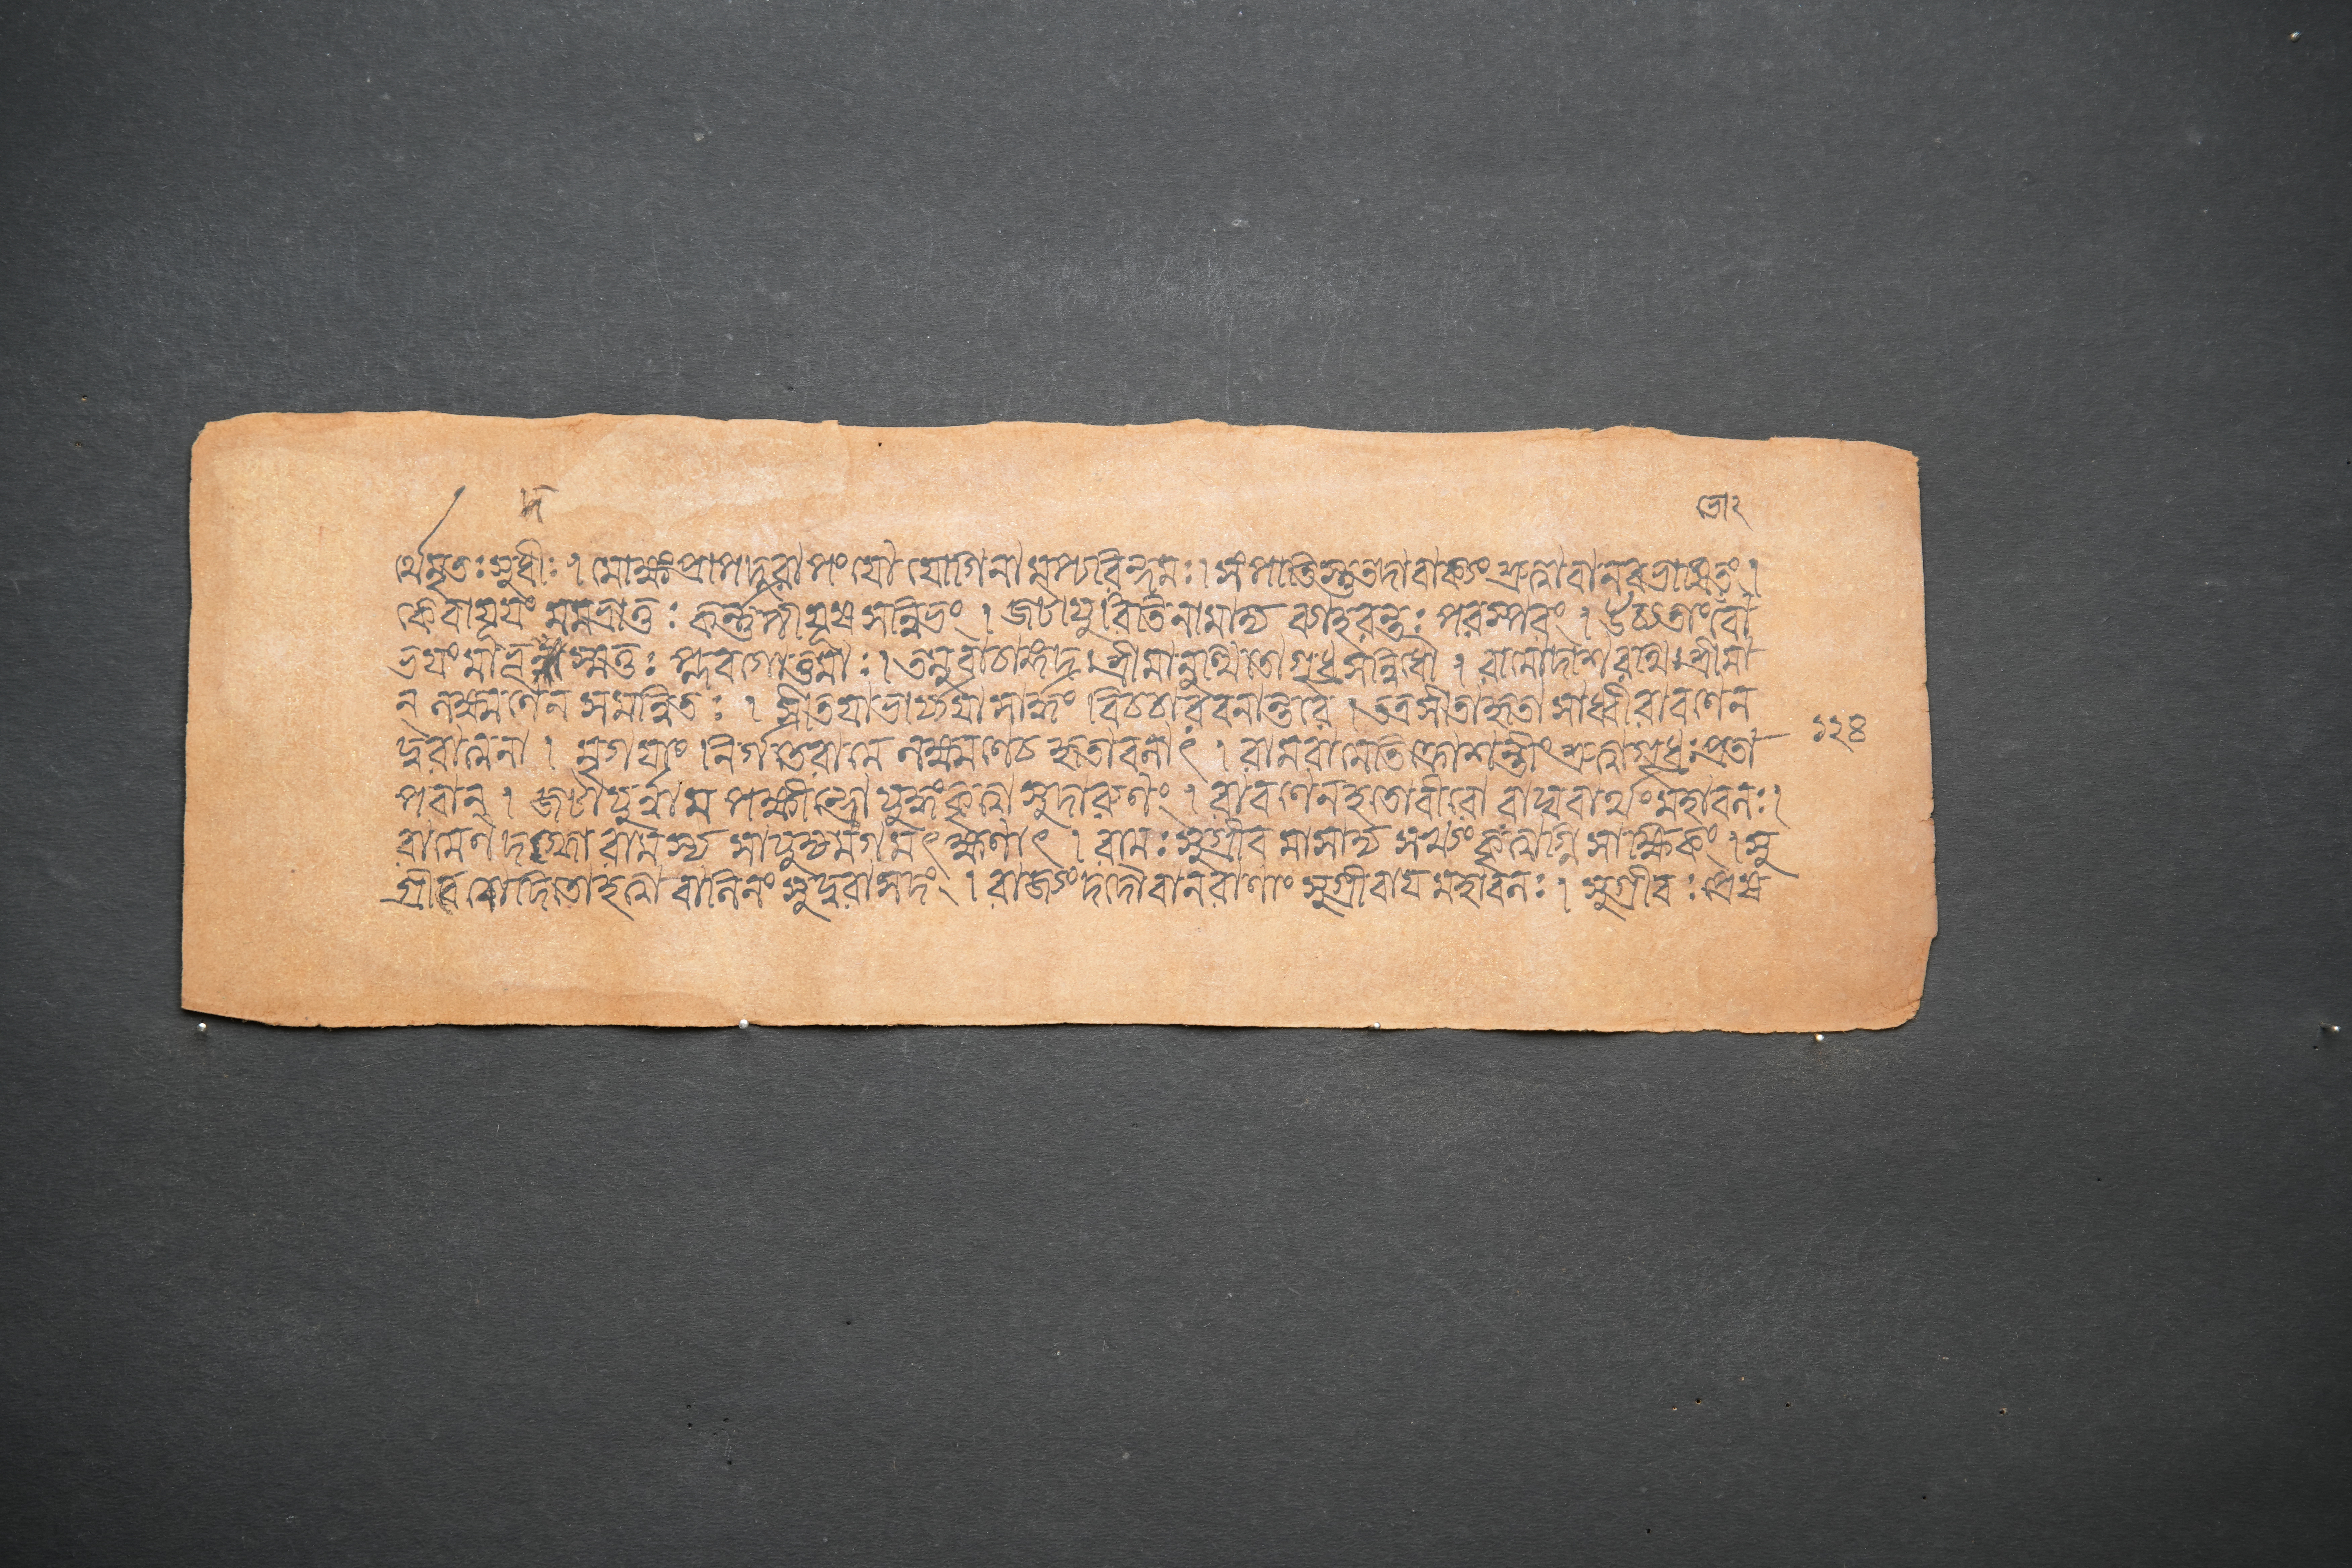 দ তো২
র্থেমৃতঃ সুধীঃ । মোক্ষং প্রাপ দুরাপং যো যোগিনামপ্যরিন্দমঃ । সংপাতিস্তু তদা বাক্যং শ্রুত্বা বানরভাষিতং ।
কে বা যূয়ং মম ভ্রাতুঃ কর্ণপীযূষসন্নিভং । জটায়ুরিতি নামাদ্য ব্যাহরন্তঃ পরস্পরং । উচ্যতাং বো
ভয়ং মা ভূন্মত্তঃ প্লবগোত্তমাঃ । তমুবাচাঙ্গদঃ শ্রীমানুত্থিতো গৃধ্রসন্নিধৌ । রামো দাশরথিঃ শ্রীমা
ন্ লক্ষ্মণেন সমন্বিতঃ । সীতয়া ভার্য্যয়া সার্দ্ধং বিচচার বনান্তরে । তত্র সীতা হৃতা সাধ্বী রাবণেন
দুরাত্মনা । মৃগয়াং নির্গতে রামে লক্ষ্মণে চ হৃতা বলাৎ । রাম রামেতি ক্রোশন্তীং শ্রুত্বা গৃধ্রঃ প্রতা ১২৪
পবান্ । জটায়ুর্নাম পক্ষীন্দ্রো যুদ্ধং কৃত্বা সুদারুণং । রাবণেন হতো বীরো রাঘবার্থং মহাবলঃ ।
রামেণ দগ্ধো রামস্য সাযুজ্যমগমৎ ক্ষণাৎ । রামঃ সুগ্রীবমাসাদ্য সখ্যং কৃত্বাগ্নিসাক্ষিকং । সু
গ্রীবচোদিতো হত্বা বালিনং সুদুরাসদং । রাজ্যং দদৌ বানরাণাং সুগ্রীবায় মহাবলঃ । সুগ্রীবঃ প্রেষ